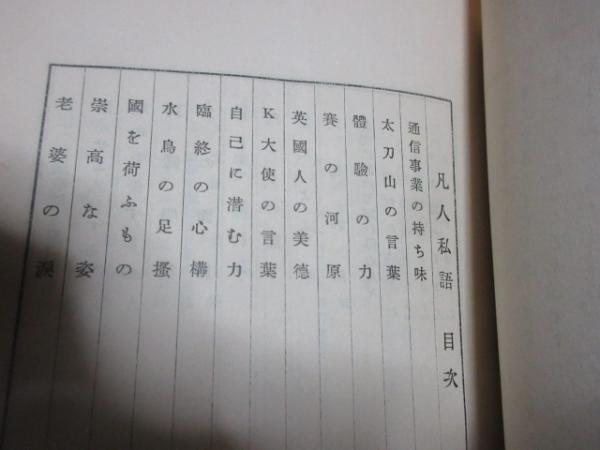 凡人私語 目次
通信事業の持ち味
太刀山の言葉
體驗の力
賽の河原
英國人の美德
K大使の言葉
自己に潜む力
臨終の心構
水鳥の足搔
國を荷ふもの
崇高な姿
老婆の淚